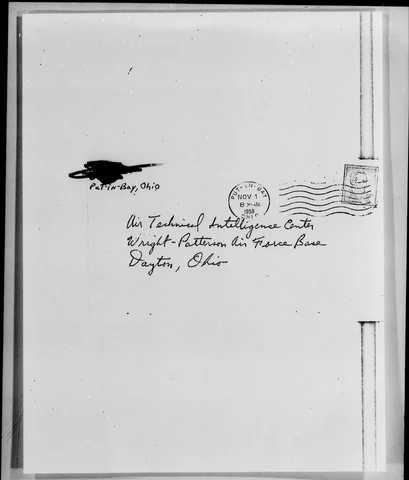 Put-in-Bay, Ohio
PUT-IN-BAY
NOV 1
1958
Air Technical Intelligence Center
Wright-Patterson Air Force Base
Dayton, Ohio